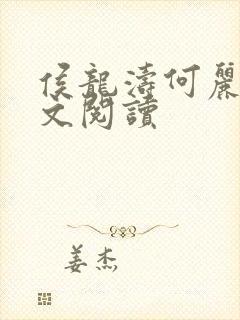 侯龍濤何麗
文閱讀
姜杰